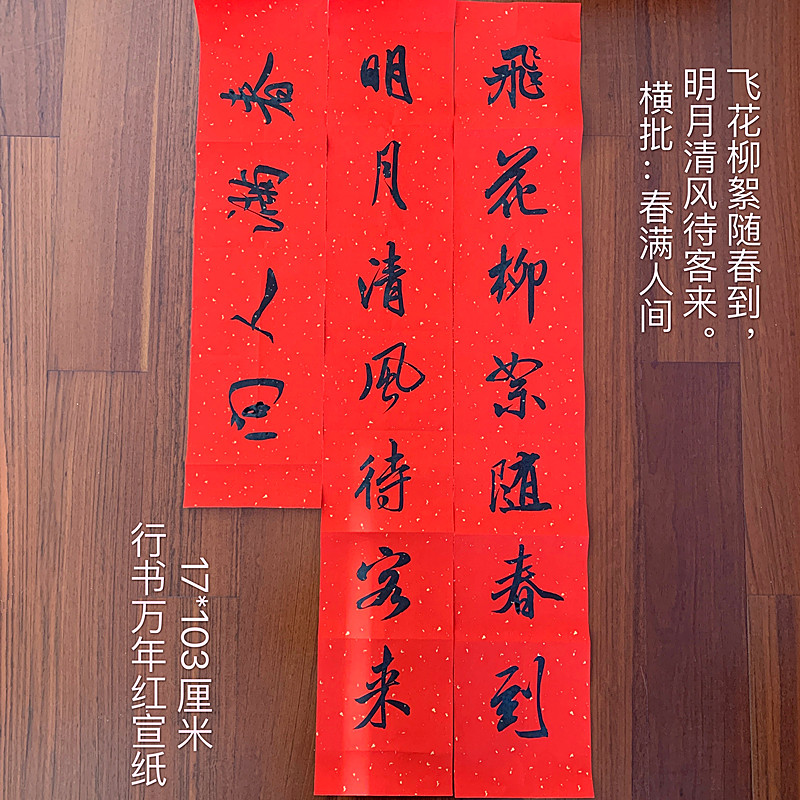 飛花柳絮随春到
明月清風待客来
春满人间
飞花柳絮随春到，
明月清风待客来。
横批：春满人间
17*103厘米
行书万年红宣纸